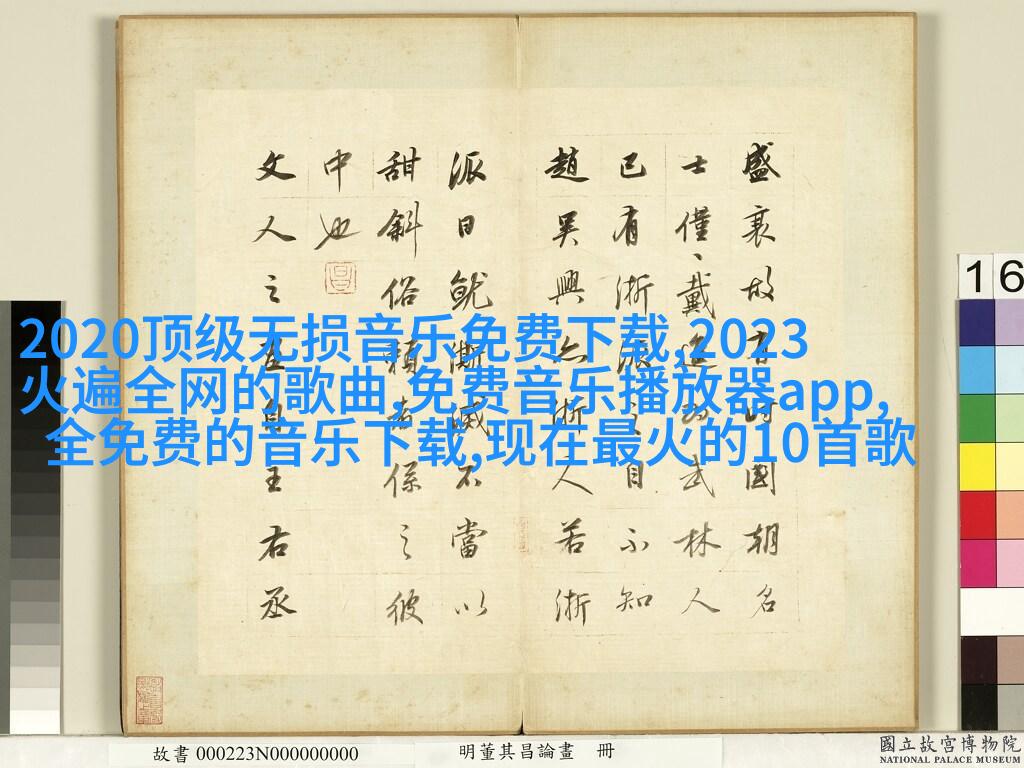 2020顶级无损音乐免费下载,2023
火遍全网的歌曲,免费音乐播放器app,
全免费的音乐下载,现在最火的10首歌
盛衰故有時國朝名
士僅、戴進為武林人
已有浙派之目不知
趙吳興亦浙人若浙
派日就澌滅不當以
甜斜俗賴者係之彼
中也
文人之畫自王右丞
16
故書 000223N000000000
明董其昌論畫 冊
國立故宮博物院
NATIONAL PALACE MUSEUM